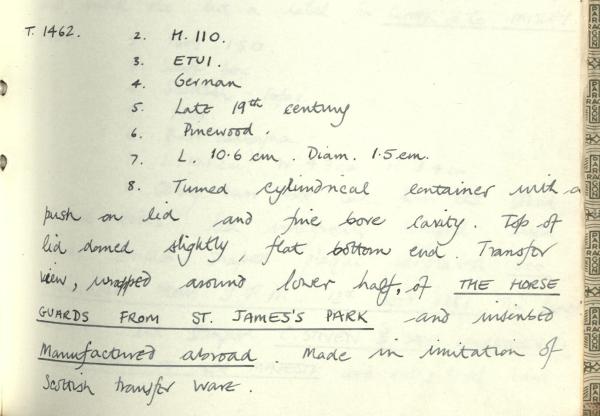 T. 1462. 2. H. 110.
3. ETUI.
4. German
5. Late 19th century
6. Pinewood.
7. L. 10.6 cm. Diam. 1.5 cm.
8. Turned cylindrical container with a
push on lid and fine bore cavity. Top of
lid domed slightly, flat bottom end. Transfer
view, wrapped around lower half, of THE HORSE
GUARDS FROM ST. JAMES'S PARK and inscribed
Manufactured abroad. Made in imitation of
Scottish transfer ware.
PARAGON
PARAGON
PARAGON
PARAGON